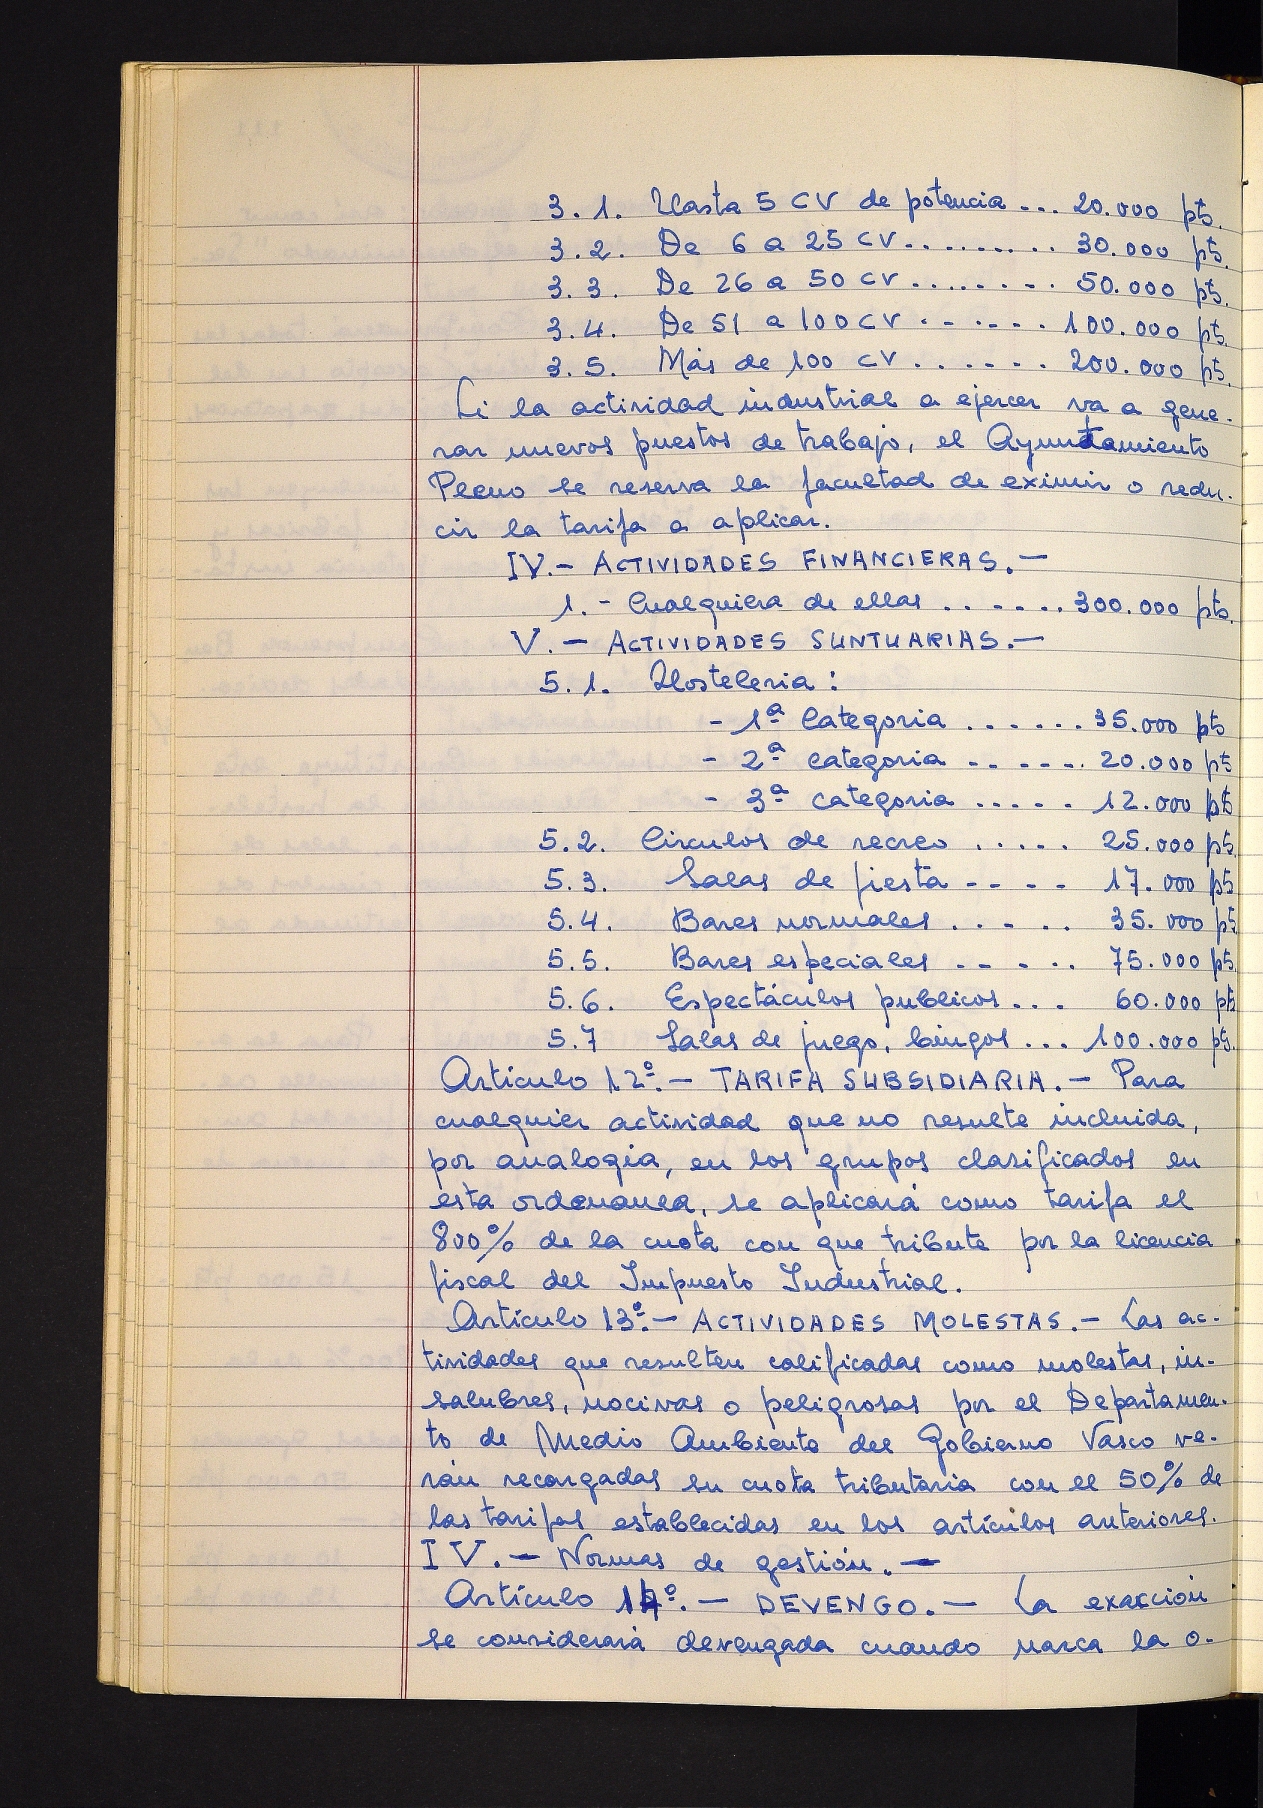 3.1. Hasta 5 CV de potencia ... 20.000 pts.
3.2. De 6 a 25 CV.......... 30.000 pts.
3.3. De 26 a 50 CV ........ 50.000 pts.
3.4. De 51 a 100 CV ...... 100.000 pts.
3.5. Más de 100 CV ...... 200.000 pts.
Si la actividad industrial a ejercer va a gene-
rar nuevos puestos de trabajo, el Ayuntamiento
Pleno se reserva la facultad de eximir o redu-
cir la tarifa a aplicar.
IV.- ACTIVIDADES FINANCIERAS.-
1.- Cualquiera de ellas ....... 300.000 pts.
V.- ACTIVIDADES SUNTUARIAS.-
5.1. Hosteleria:
- 1ª Categoria ...... 35.000 pts
- 2ª categoria ...... 20.000 pts
- 3ª categoria ..... 12.000 pts
5.2. Circulos de recreo ..... 25.000 pts.
5.3. Salas de fiesta ---- 17.000 pts
5.4. Bares normales ..... 35.000 pts
5.5. Bares especiales ..... 75.000 pts.
5.6. Espectáculos publicos ... 60.000 pts
5.7 Salas de juego, bingos ... 100.000 pts.
Artículo 12º.- TARIFA SUBSIDIARIA.- Para
cualquier actividad que no resulte incluida,
por analogia, en los grupos clasificados en
esta ordenanza, se aplicará como tarifa el
800% de la cuota con que tribute por la licencia
fiscal del Impuesto Industrial.
Artículo 13º.- ACTIVIDADES MOLESTAS.- Las ac-
tividades que resulten calificadas como molestas, in-
salubres, nocivas o peligrosas por el Departamen-
to de Medio Ambiente del Gobierno Vasco ve-
rán recargadas su cuota tributaria con el 50% de
las tarifas establecidas en los artículos anteriores.
IV.- Normas de gestión.-
Artículo 14º.- DEVENGO.- La exacción
se considerará devengada cuando nazca la o-